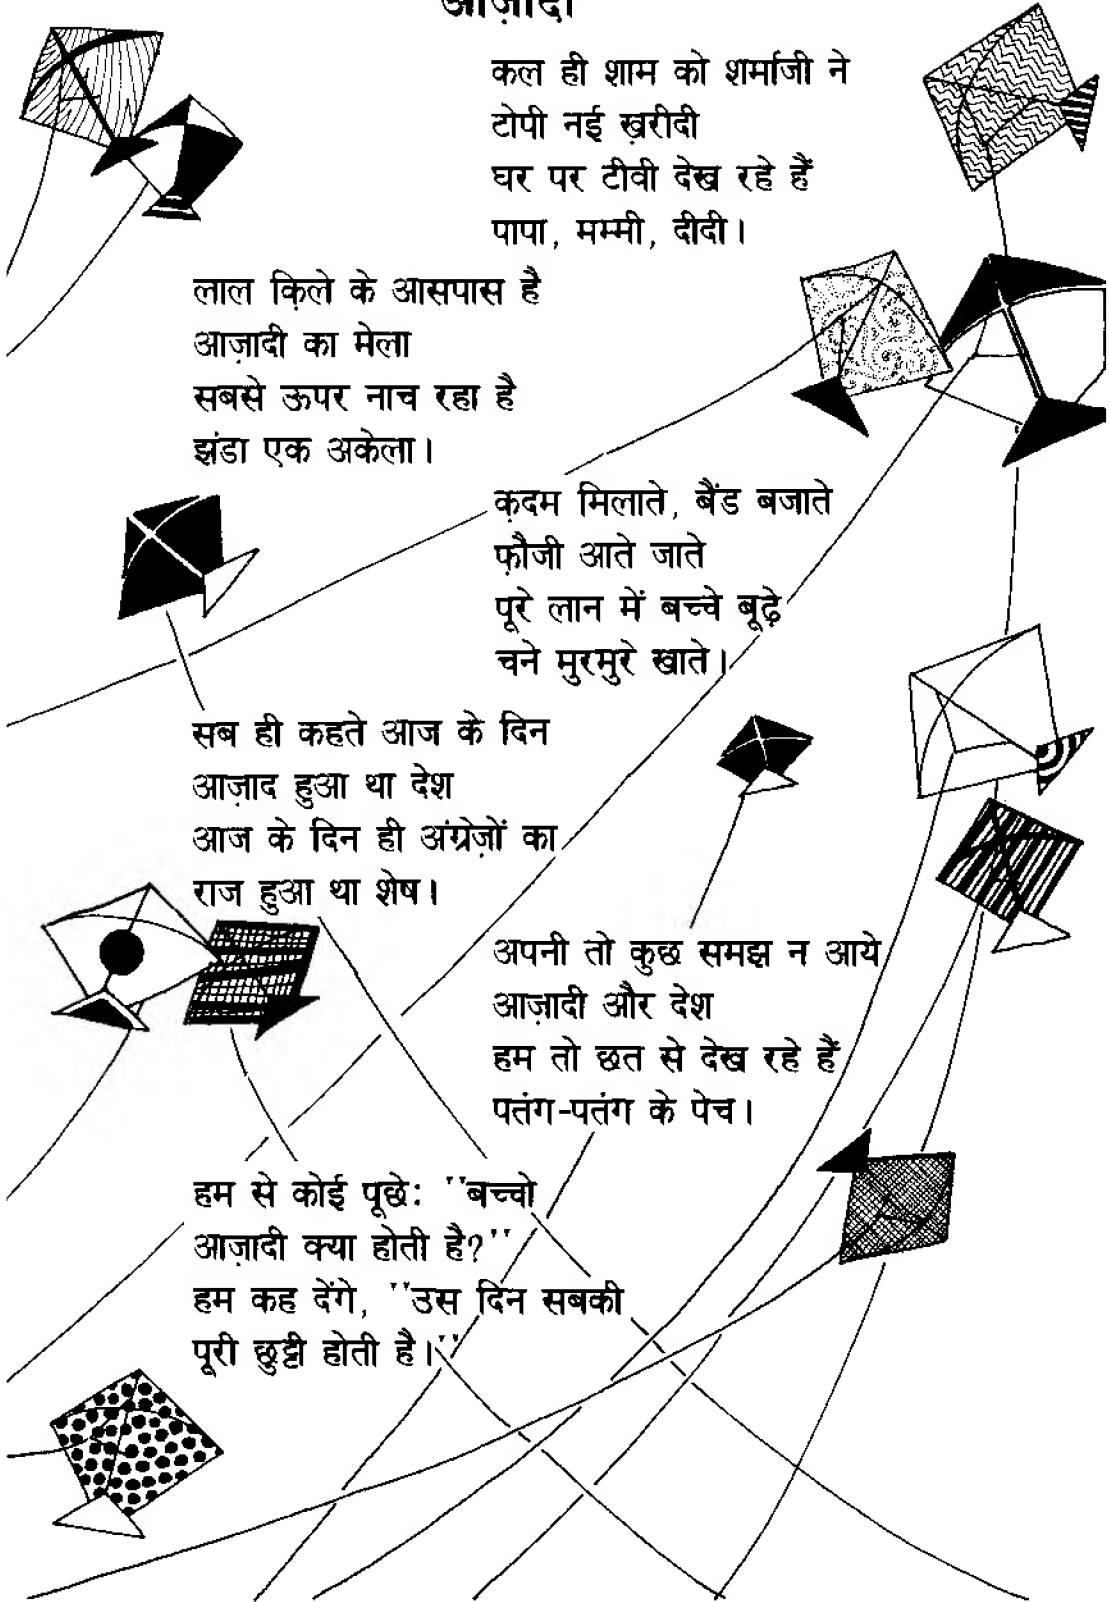 आज़ादी
कल ही शाम को शर्माजी ने
टोपी नई ख़रीदी
घर पर टीवी देख रहे हैं
पापा, मम्मी, दीदी।
लाल क़िले के आसपास है
आज़ादी का मेला
सबसे ऊपर नाच रहा है
झंडा एक अकेला।
क़दम मिलाते, बैंड बजाते
फ़ौजी आते जाते
पूरे लान में बच्चे बूढ़े
चने मुरमुरे खाते।
सब ही कहते आज के दिन
आज़ाद हुआ था देश
आज के दिन ही अंग्रेज़ों का
राज हुआ था शेष।
अपनी तो कुछ समझ न आये
आज़ादी और देश
हम तो छत से देख रहे हैं
पतंग-पतंग के पेच।
हम से कोई पूछे: ''बच्चो
आज़ादी क्या होती है?''
हम कह देंगे, ''उस दिन सबकी
पूरी छुट्टी होती है।''